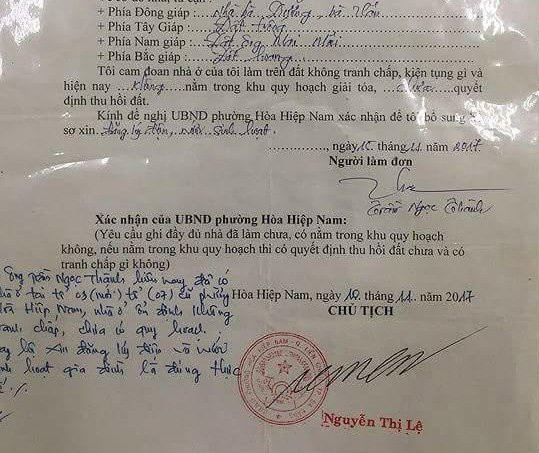 + Phía Đông giáp: Nhà bà Dưỡng, bà Vân
+ Phía Tây Giáp: Đất trống
+ Phía Nam giáp: Đất ông
+ Phía Bắc giáp: Đất
Tôi cam đoan nhà ở của tôi làm trên đất không tranh chấp, kiện tụng gì và
hiện nay ..không..nằm trong khu quy hoạch giải tỏa, ..chưa.. quyết
định thu hồi đất.
Kính đề nghị UBND phường Hòa Hiệp Nam xác nhận để tôi bổ sung
sơ xin đăng ký điện, nước sinh hoạt.
, ngày 10. tháng 11. năm 2017.
Người làm đơn
Trần Ngọc Thành
Xác nhận của UBND phường Hòa Hiệp Nam:
(Yêu cầu ghi đầy đủ nhà đã làm chưa, có nằm trong khu quy hoạch
không, nếu nằm trong khu quy hoạch thì có quyết định thu hồi đất chưa và có
tranh chấp gì không)
Ông Trần Ngọc Thành hiện nay đã có
nhà ở tại tổ 03 (mới) tổ (07) cũ phường
Hòa Hiệp Nam, nhà ở ổn định không
tranh chấp, chưa có quy hoạch.
Hòa Hiệp Nam, ngày 10. tháng 11. năm 2017
CHỦ TỊCH
nay là xin đăng ký điện và nước
sinh hoạt gia đình là đúng thực
tế ./.
Nguyễn Thị Lệ